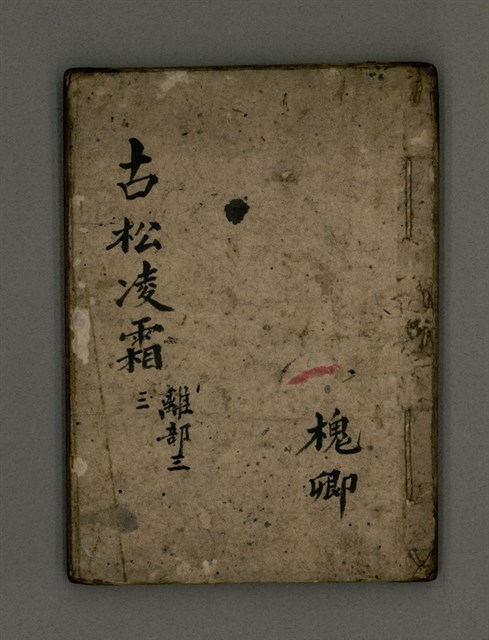 槐卿
古松凌霜
離部三
三